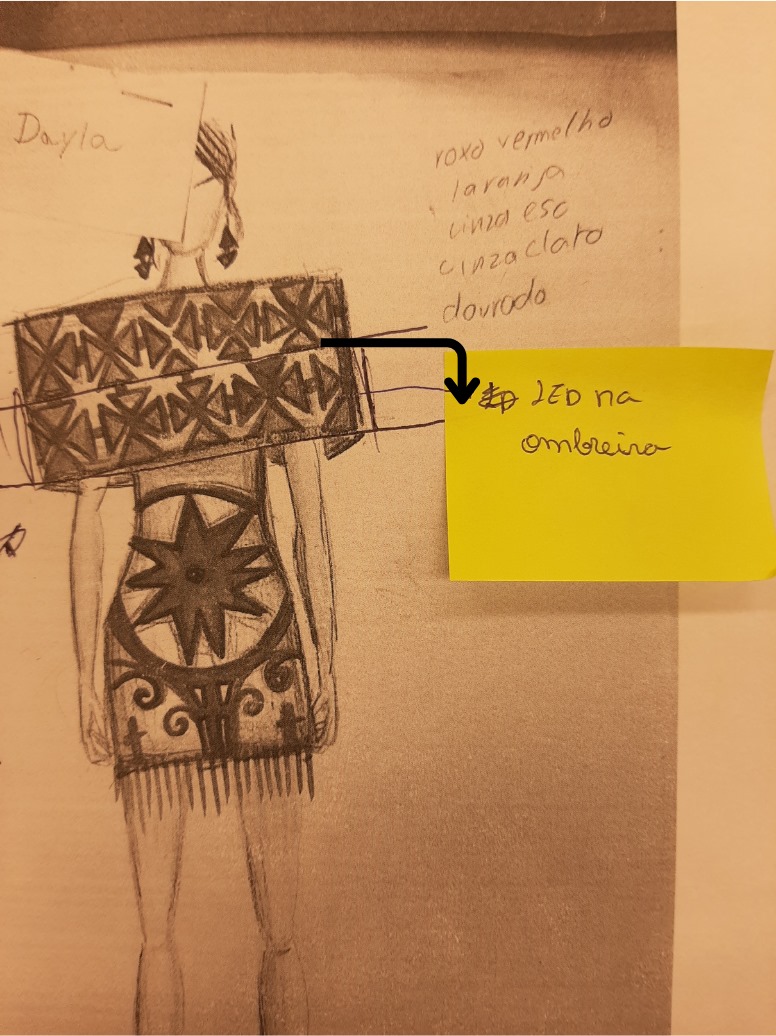 Dayla
roxo vermelho
laranja
cinza esc
cinza claro
dourado
LED na
ombreira